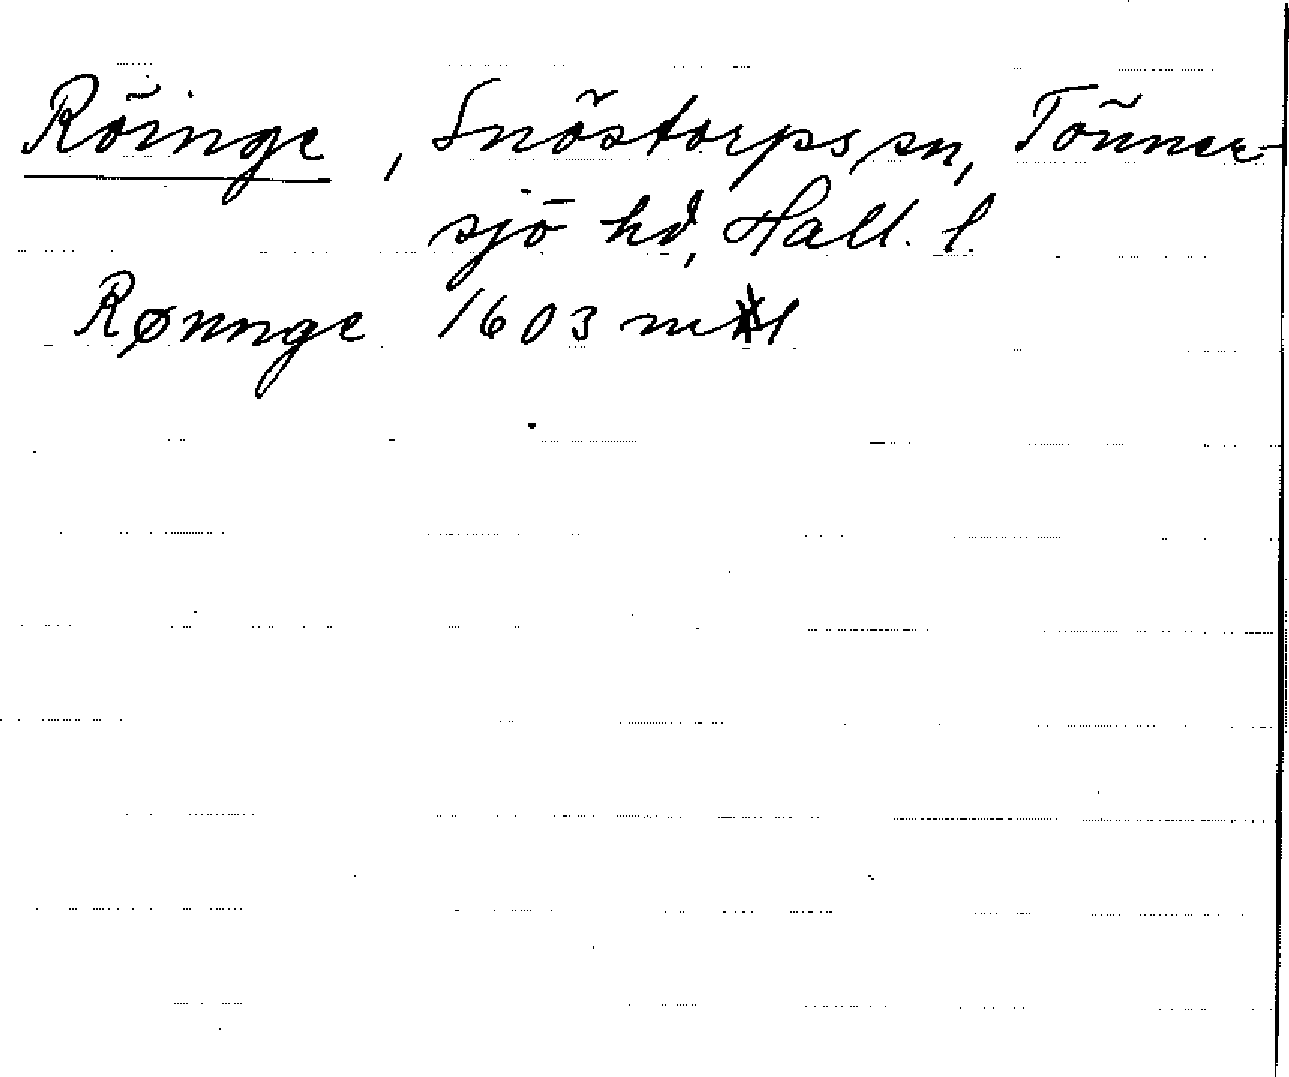 Röinge, Snöstorps sn, Tönner-
sjö hd, Hall. l.
Rønnge 1603